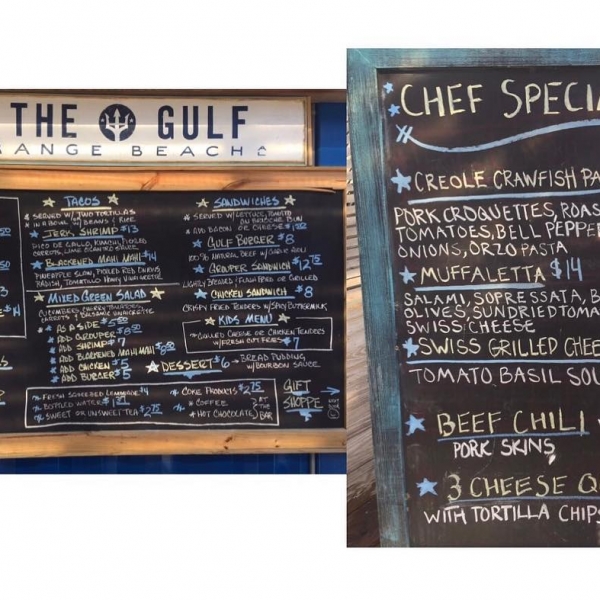 THE GULF
ANGE BEACH
TACOS
SERVED W/ TWO TORTILLAS
IN A BOWL W/ BEANS & RICE
JERK SHRIMP $13
PICO DE GALLO, KIMCHI, PICKLED
CARROTS, LIME
BLACKENED MAHI MAHI $14
PINEAPPLE SLAW, PICKLED RED ONIONS,
RADISH, TOMATILLO HONEY VINAIGRETTE
MIXED GREEN SALAD
CUCUMBERS, CHERRY TOMATOES,
CARROTS & BALSAMIC VINAIGRETTE
AS A SIDE
ADD GROUPER
ADD SHRIMP $7
ADD BLACKENED MAHI MAHI
ADD CHICKEN $5
ADD BURGER $5
SANDWICHES
SERVED W/ LETTUCE, TOMATO
ON BRIOCHE BUN
ADD BACON OR CHEESE
GULF BURGER $8
100% NATURAL BEEF W/ GARLIC AIOLI
GROUPER SANDWICH $12.75
LIGHTLY BREADED/FLASH FRIED OR GRILLED
CHICKEN SANDWICH $8
CRISPY FRIED TENDERS W/ SPICY BUTTERMILK
KIDS MENU
GRILLED CHEESE OR CHICKEN TENDERS
W/ FRESH CUT FRIES $7
DESSERT $6 BREAD PUDDING
W/ BOURBON SAUCE
FRESH SQUEEZED LEMONADE $4
BOTTLED WATER
SWEET OR UNSWEET TEA $2.75
COKE PRODUCTS $2.75
COFFEE
HOT CHOCOLATE
AT THE BAR
GIFT
SHOPPE
CHEF SPECIA
CREOLE CRAWFISH PA
PORK CROQUETTES, ROAS
TOMATOES, BELL PEPPER
ONIONS, ORZO PASTA
MUFFALETTA $14
SALAMI, SOPRESSATA, B
OLIVES, SUNDRIED TOMA
SWISS CHEESE
SWISS GRILLED CHEE
TOMATO BASIL SOU
BEEF CHILI
PORK SKINS
3 CHEESE Q
WITH TORTILLA CHIPS